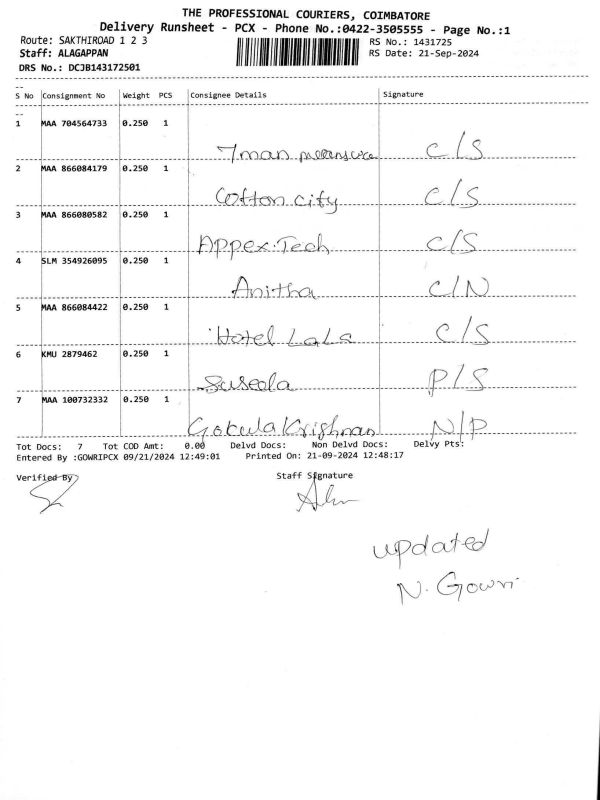 THE PROFESSIONAL COURIERS, COIMBATORE
Delivery Runsheet - PCX - Phone No.:0422-3505555 - Page No.:1
Route: SAKTHIROAD 1 2 3 RS No.: 1431725
Staff: ALAGAPPAN RS Date: 21-Sep-2024
DRS No.: DCJB143172501
S No Consignment No Weight PCS Consignee Details Signature
1 MAA 704564733 0.250 1
7man C/S
2 MAA 866084179 0.250 1
Cotton city C/S
3 MAA 866080582 0.250 1
Appex.Tech C/S
4 SLM 354926095 0.250 1
Anitha C/N
5 MAA 866084422 0.250 1
Hotel LaLa C/S
6 KMU 2879462 0.250 1
Suseela P/S
7 MAA 100732332 0.250 1
Gokula Krishnan N/P
Tot Docs: 7 Tot COD Amt: 0.00 Delvd Docs: Non Delvd Docs: Delvy Pts:
Entered By :GOWRIPCX 09/21/2024 12:49:01 Printed On: 21-09-2024 12:48:17
Verified By Staff Signature
updated
N. Gowri